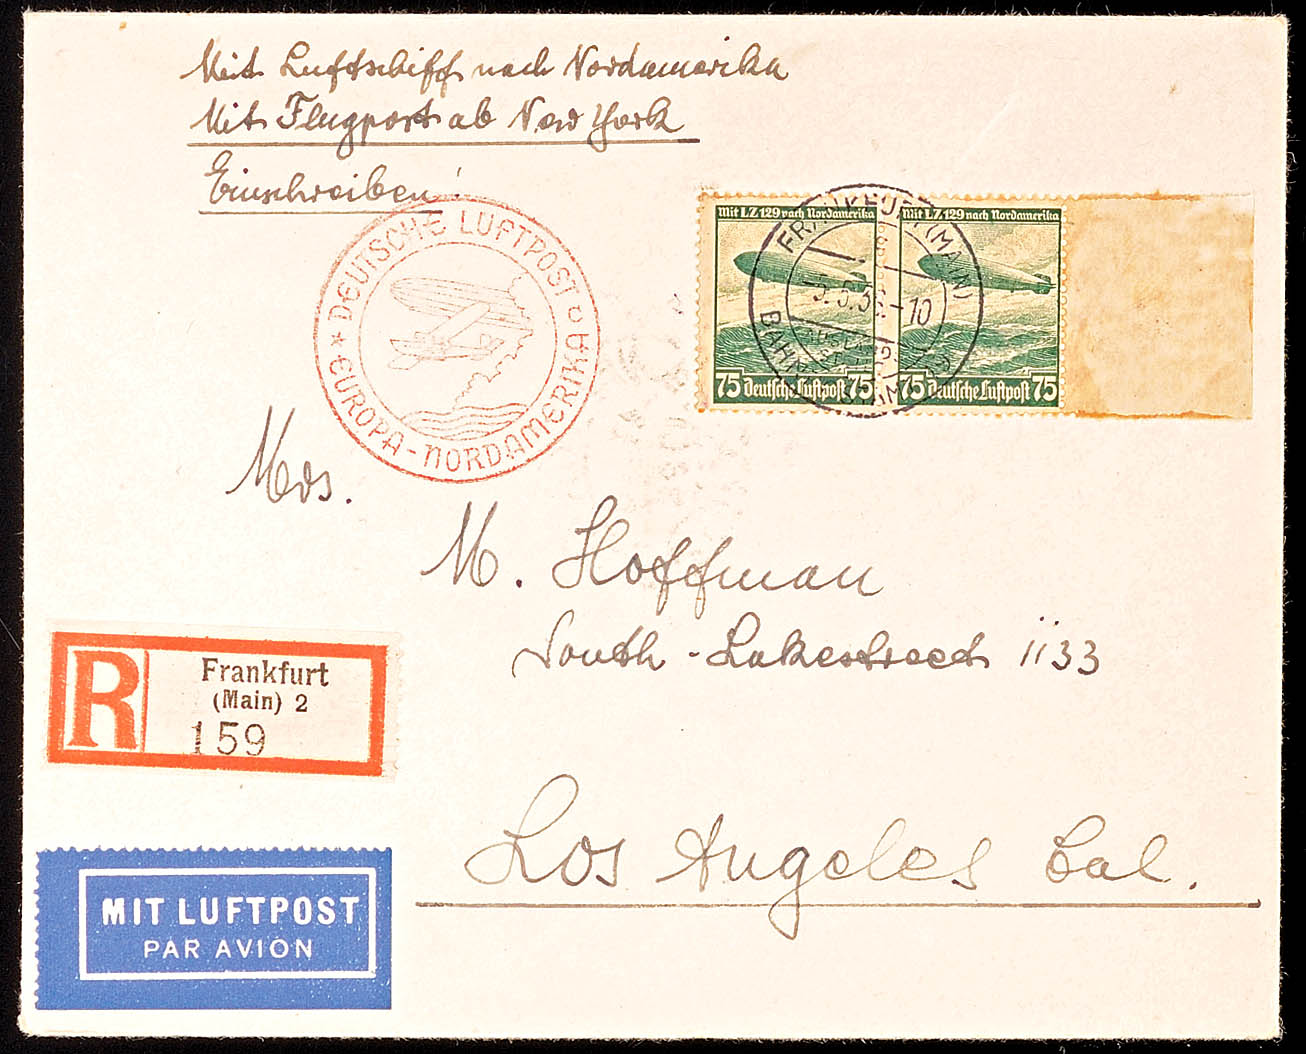 Mit Luftschiff nach Nordamerika
Mit Flugpost ab New York
Einschreiben!
DEUTSCHE LUFTPOST
* EUROPA - NORDAMERIKA
Mit LZ 129 nach Nordamerika
75 Deutsche Luftpost 75
Mit LZ 129 nach Nordamerika
75 Deutsche Luftpost 75
FRANKFURT (MAIN)
5.5.36.-10
Mrs.
M. Hoffman
South-Lakestreet 1133
Los Angeles Cal.
R
Frankfurt
(Main) 2
159
MIT LUFTPOST
PAR AVION